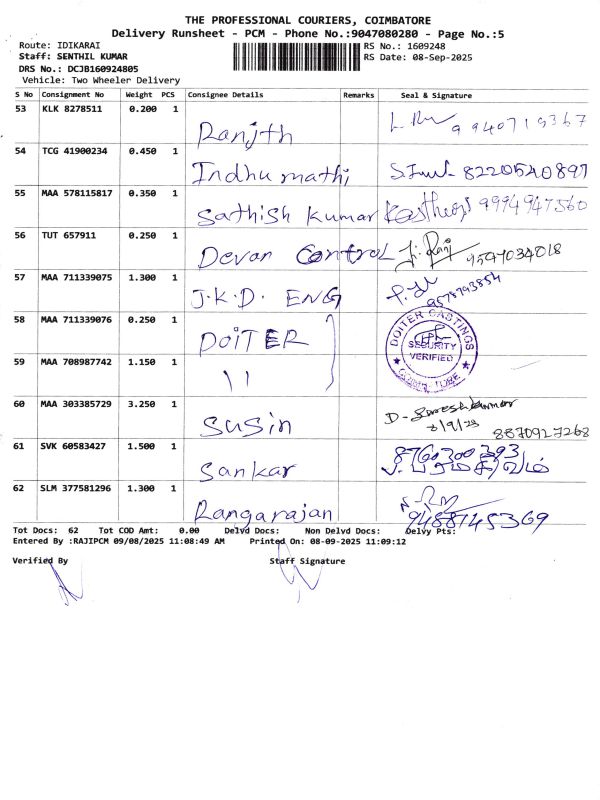 THE PROFESSIONAL COURIERS, COIMBATORE
Delivery Runsheet - PCM - Phone No.:9047080280 - Page No.:5
Route: IDIKARAI
RS No.: 1609248
Staff: SENTHIL KUMAR
RS Date: 08-Sep-2025
DRS No.: DCJB160924805
Vehicle: Two Wheeler Delivery
S No Consignment No Weight PCS Consignee Details Remarks Seal & Signature
53 KLK 8278511 0.200 1
Ranjth 9940719367
54 TCG 41900234 0.450 1
Indhu mathi 8220540897
55 MAA 578115817 0.350 1
Sathish Kumar 9994947560
56 TUT 657911 0.250 1
Devan Control 9597034018
57 MAA 711339075 1.300 1
J.K.D. ENG 9578793854
58 MAA 711339076 0.250 1
DOITER
DOITER CASTINGS
SECURITY
VERIFIED
59 MAA 708987742 1.150 1
11
60 MAA 303385729 3.250 1
Susin D-Sureshkumar
8/9/25
8870927268
61 SVK 60583427 1.500 1
Sankar 8760300393
62 SLM 377581296 1.300 1
Rangarajan 9488745369
Tot Docs: 62 Tot COD Amt: 0.00 Delvd Docs: Non Delvd Docs: Delvy Pts:
Entered By :RAJIPCM 09/08/2025 11:08:49 AM Printed On: 08-09-2025 11:09:12
Verified By Staff Signature